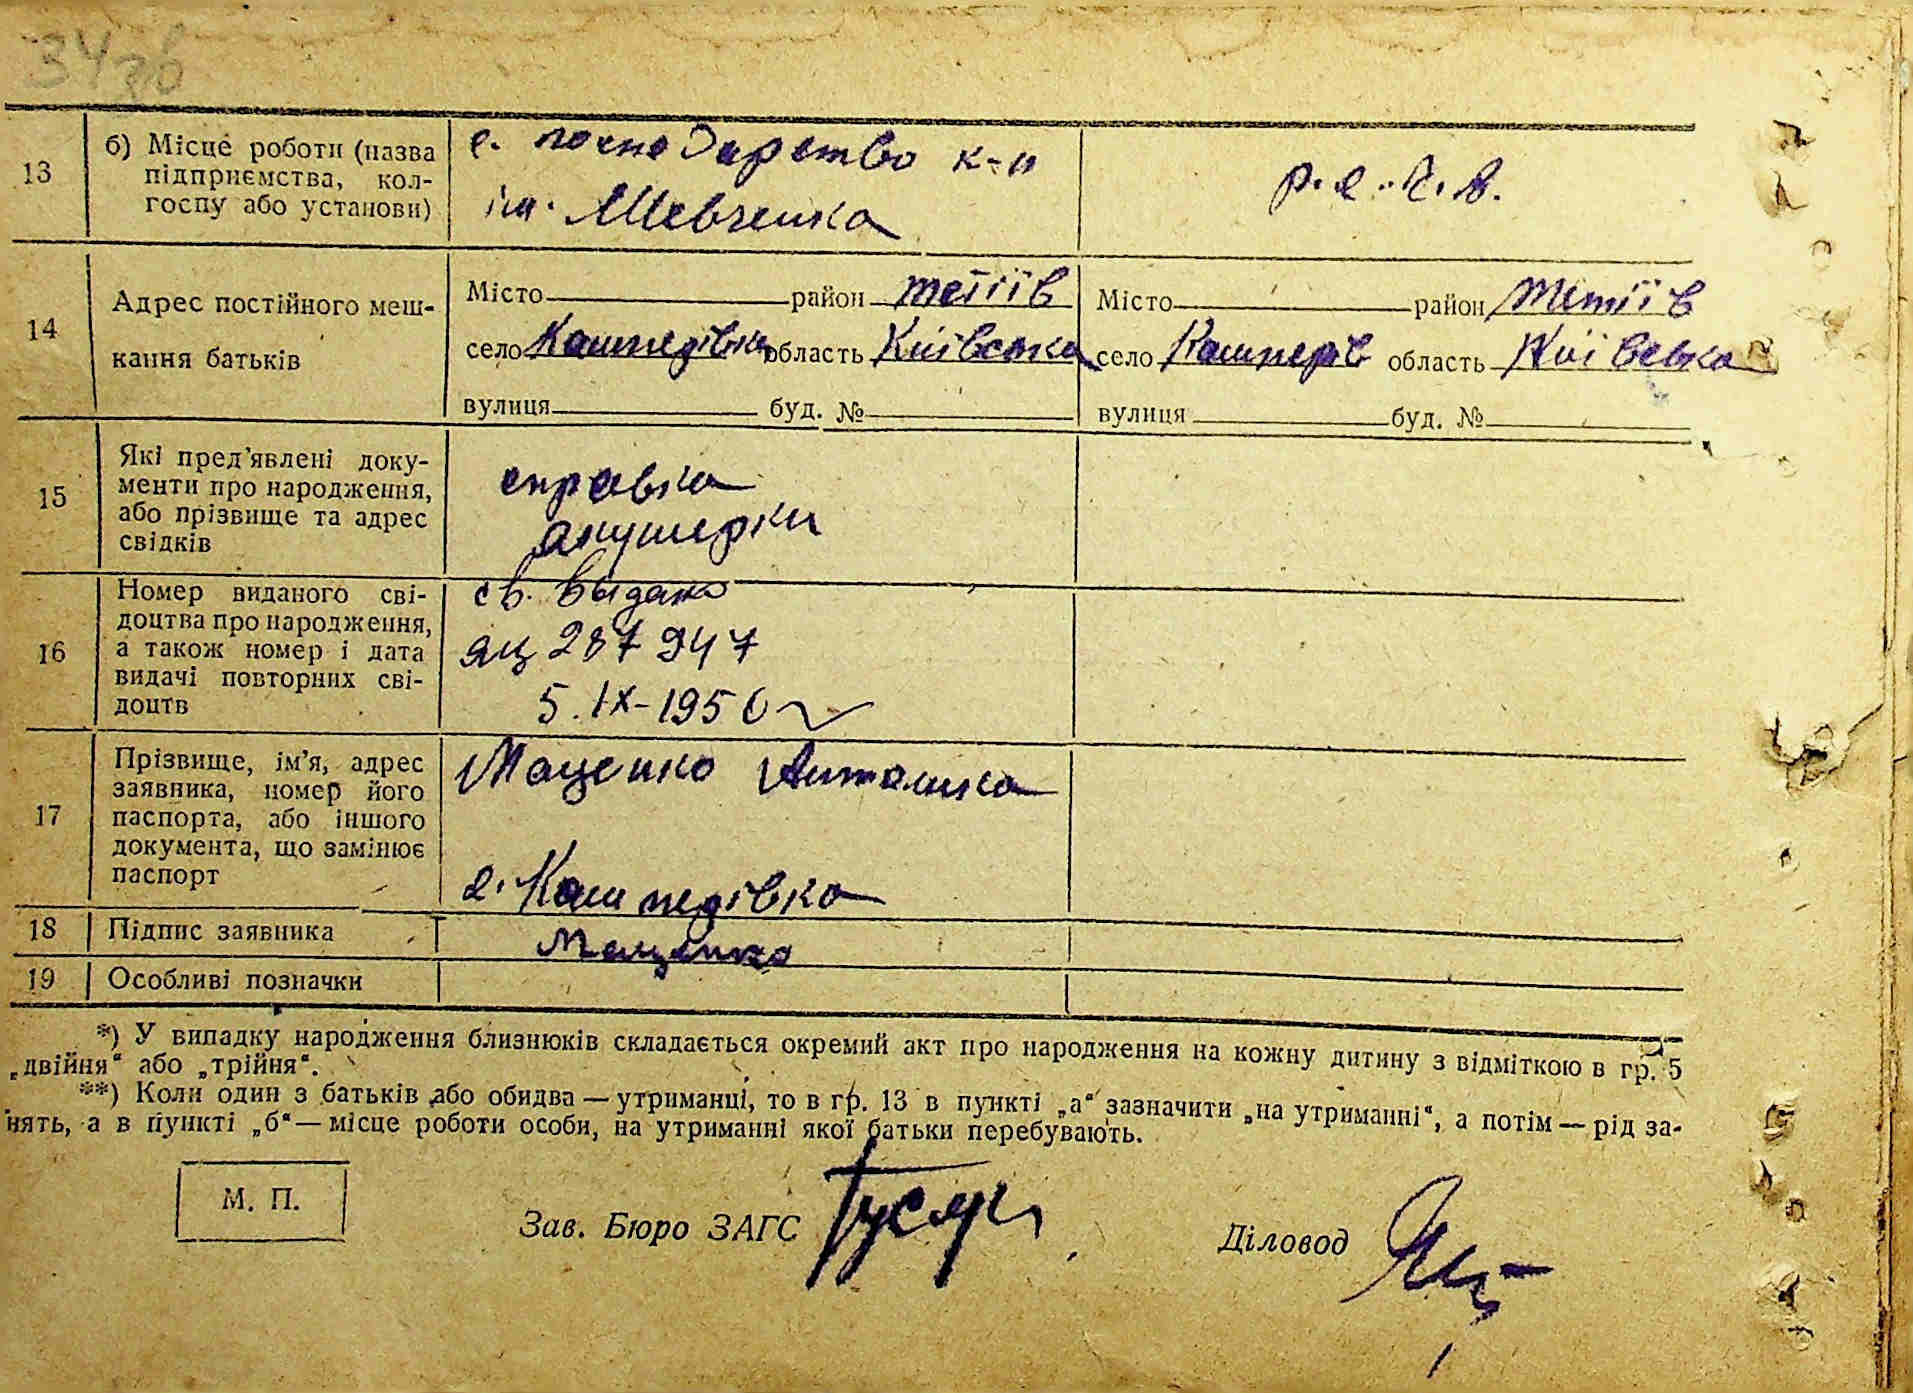 34зв
13
б) Місце роботи (назва
підприємства, кол-
госпу або установи)
с. господарство к-п
ім. Шевченка
14
Адрес постійного меш-
кання батьків
Місто район Тетіїв
село Кашперівка область Київська
вулиця буд. №
Місто район Тетіїв
село Кашперів область Київська
вулиця буд. №
15
Які пред'явлені доку-
менти про народження,
або прізвище та адрес
свідків
справка
акушерки
16
Номер виданого сві-
доцтва про народження,
а також номер і дата
видачі повторних сві-
доцтв
св. выдано
ЯЦ 287947
5.IX-1950
17
Прізвище, ім'я, адрес
заявника, номер його
паспорта, або іншого
документа, що замінює
паспорт
Маценко Антоніна
с. Кашперівка
18
Підпис заявника
Маценко
19
Особливі позначки
*) У випадку народження близнюків складається окремий акт про народження на кожну дитину з відміткою в гр. 5
„двійня“ або „трійня“.
**) Коли один з батьків або обидва — утриманці, то в гр. 13 в пункті „а“ зазначити „на утриманні“, а потім — рід за-
нять, а в пункті „б“ — місце роботи особи, на утриманні якої батьки перебувають.
М. П.
Зав. Бюро ЗАГС
Діловод